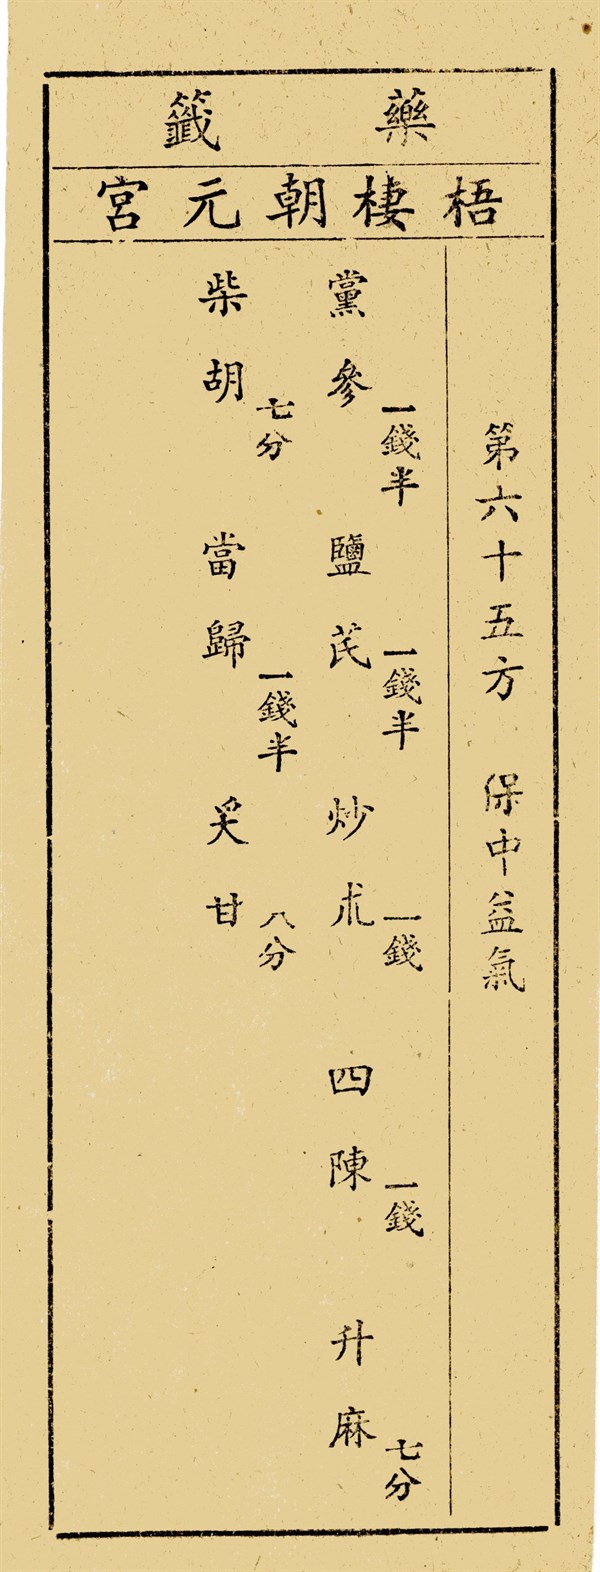 藥籤
梧棲朝元宮
第六十五方 保中益氣
黨參 一錢半 鹽芪 一錢半 炒朮 一錢 四陳 一錢 升麻 七分
柴胡 七分 當歸 一錢半 甘 八分